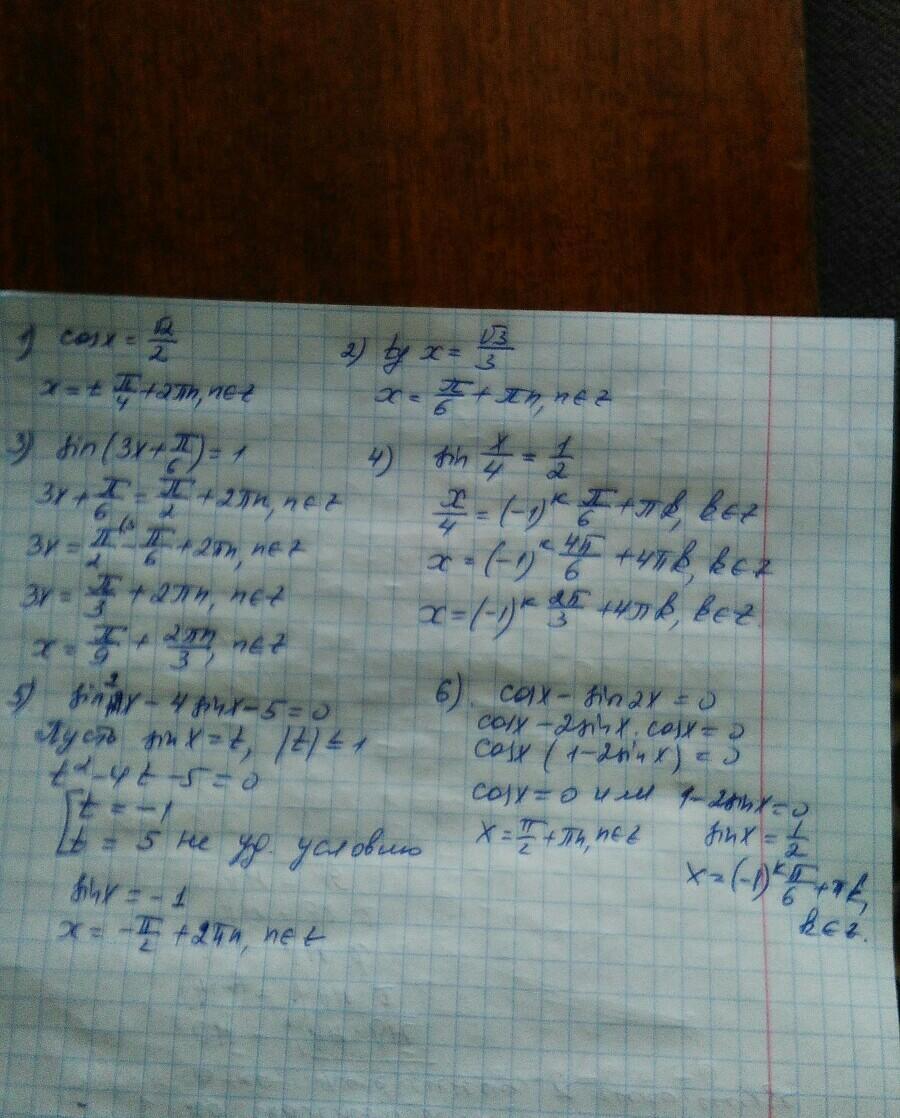 1) cosx = √2/2
x = ± π/4 + 2πn, n∈z
2) tg x = √3/3
x = π/6 + πn, n∈z
3) sin(3x + π/6) = 1
3x + π/6 = π/2 + 2πn, n∈z
3x = π/2 - π/6 + 2πn, n∈z
3x = π/3 + 2πn, n∈z
x = π/9 + 2πn/3, n∈z
4) sin x/4 = 1/2
x/4 = (-1)^k π/6 + πk, k∈z
x = (-1)^k 4π/6 + 4πk, k∈z
x = (-1)^k 2π/3 + 4πk, k∈z.
5) sin²x - 4 sinx - 5 = 0
Пусть sinx = t, |t| ≤ 1
t² - 4t - 5 = 0
[t = -1
t = 5 не уд. условию
sinx = -1
x = -π/2 + 2πn, n∈z
6) cosx - sin2x = 0
cosx - 2sinx · cosx = 0
cosx (1 - 2sinx) = 0
cosx = 0 или 1 - 2sinx = 0
x = π/2 + πn, n∈z
sinx = 1/2
x = (-1)^k π/6 + πk,
k∈z.